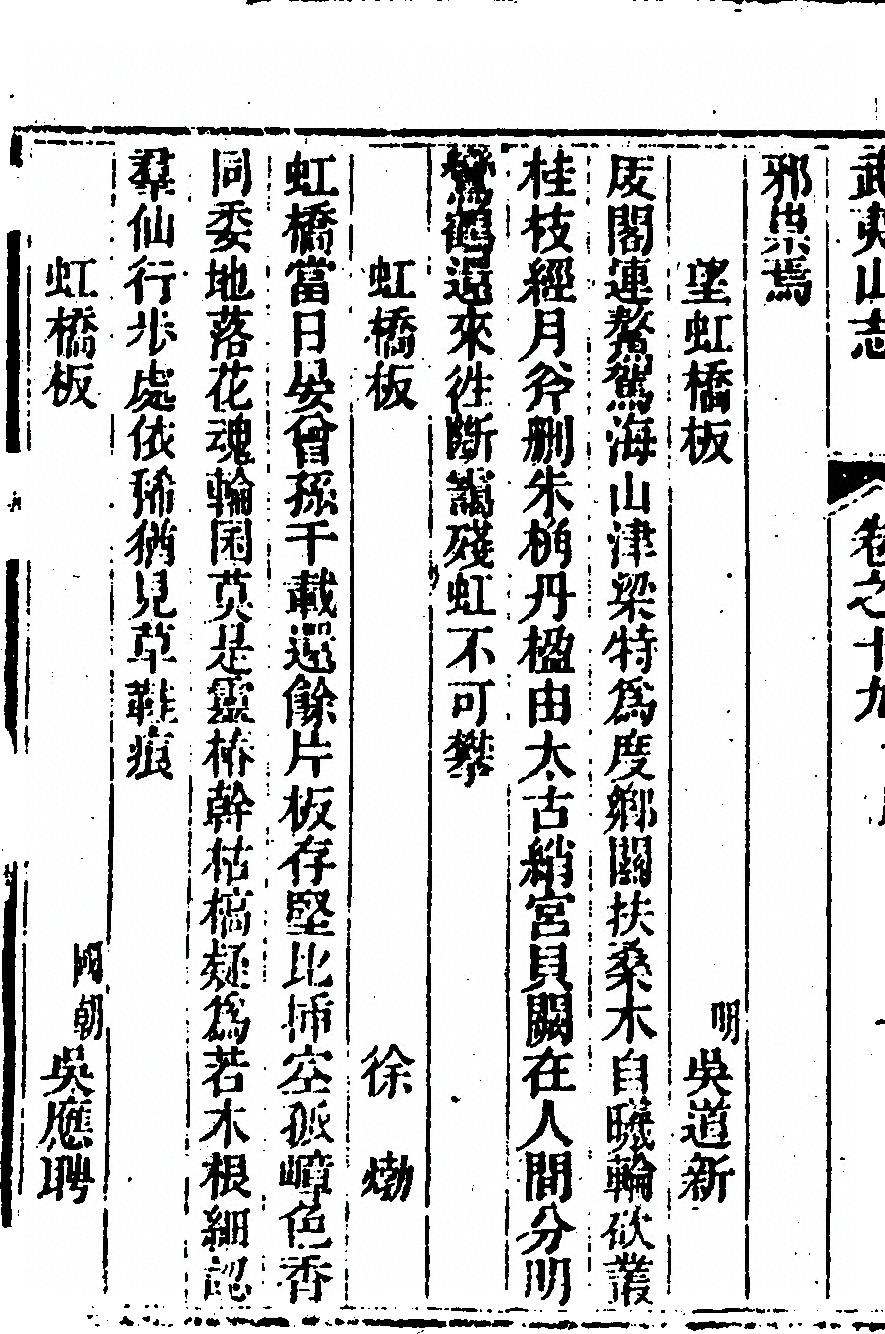 武夷山志 卷之十九
邪祟焉
望虹橋板 明 吳道新
庋閣連鰲駕海山津梁特為度鄉關扶桑木自曦輪砍叢
桂枝經月斧刪朱桷丹楹由太古綃宮貝闕在人間分明
鸞鶴還來往斷靄殘虹不可攀
虹橋板 徐𤊹
虹橋當日晏曾孫千載還餘片板存堅比插空孤嶂色香
同委地落花魂輪囷莫是靈椿幹枯槁疑為若木根細認
羣仙行步處依稀猶見草鞋痕
虹橋板 國朝 吳應聘